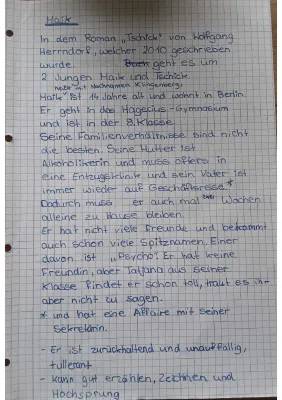 Maik
In dem Roman „Tschick" von Wolfgang
Herrndorf, welcher 2010 geschrieben
wurde. geht es um
2 Jungen Maik und Tschick.
heißt mit Nachnamen Klingenberg,
Maik ist 14 Jahre alt und wohnt in Berlin.
Er geht in das Hagecius-Gymnasium
und ist in der 8. Klasse.
Seine Familienverhältnisse sind nicht
die besten. Seine Mutter ist
Alkoholikerin und muss öfters in
eine Entzugsklinik und sein Vater ist
immer wieder auf Geschäftsreise *
Dadurch muss er auch mal zwei Wochen
alleine zu Hause bleiben.
Er hat nicht viele Freunde und bekommt
auch schon viele Spitznamen. Einer
davon ist „Psycho". Er hat keine
Freundin, aber Tatjana aus seiner
Klasse findet er schon toll, traut es ihr
aber nicht zu sagen.
* und hat eine Affaire mit seiner
Sekretärin.
- Er ist zurückhaltend und unauffällig,
tullerant
- kann gut erzählen, Zeichnen und
Hochsprung